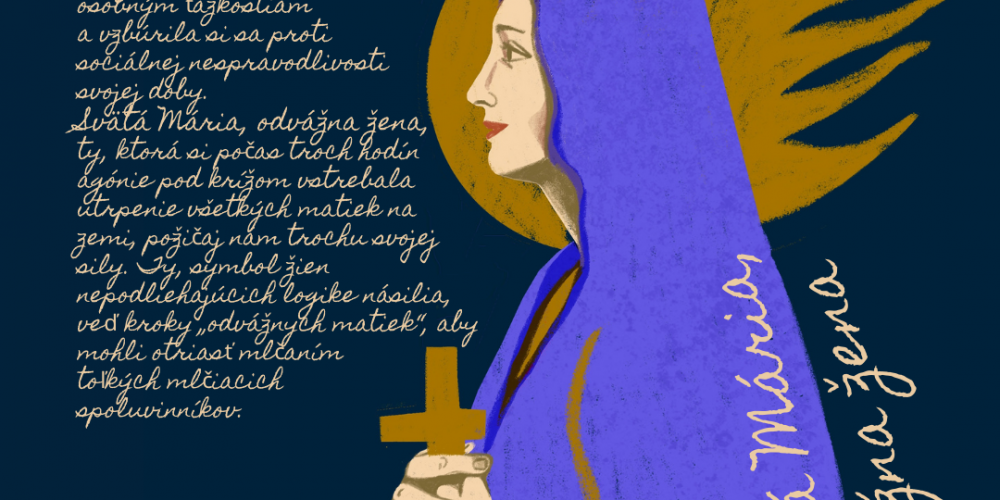 osobným ťažkostiam
a vzbúrila si sa proti
sociálnej nespravodlivosti
svojej doby.
Svätá Mária, odvážna žena,
ty, ktorá si počas troch hodín
agónie pod krížom vstrebala
utrpenie všetkých matiek na
zemi, požičaj nám trochu svojej
sily. Ty, symbol žien
nepodliehajúcich logike násilia,
veď kroky „odvážnych matiek“, aby
mohli otriasť mlčaním
toľkých mlčiacich
spoluvinníkov.
á Mária,
žna žena